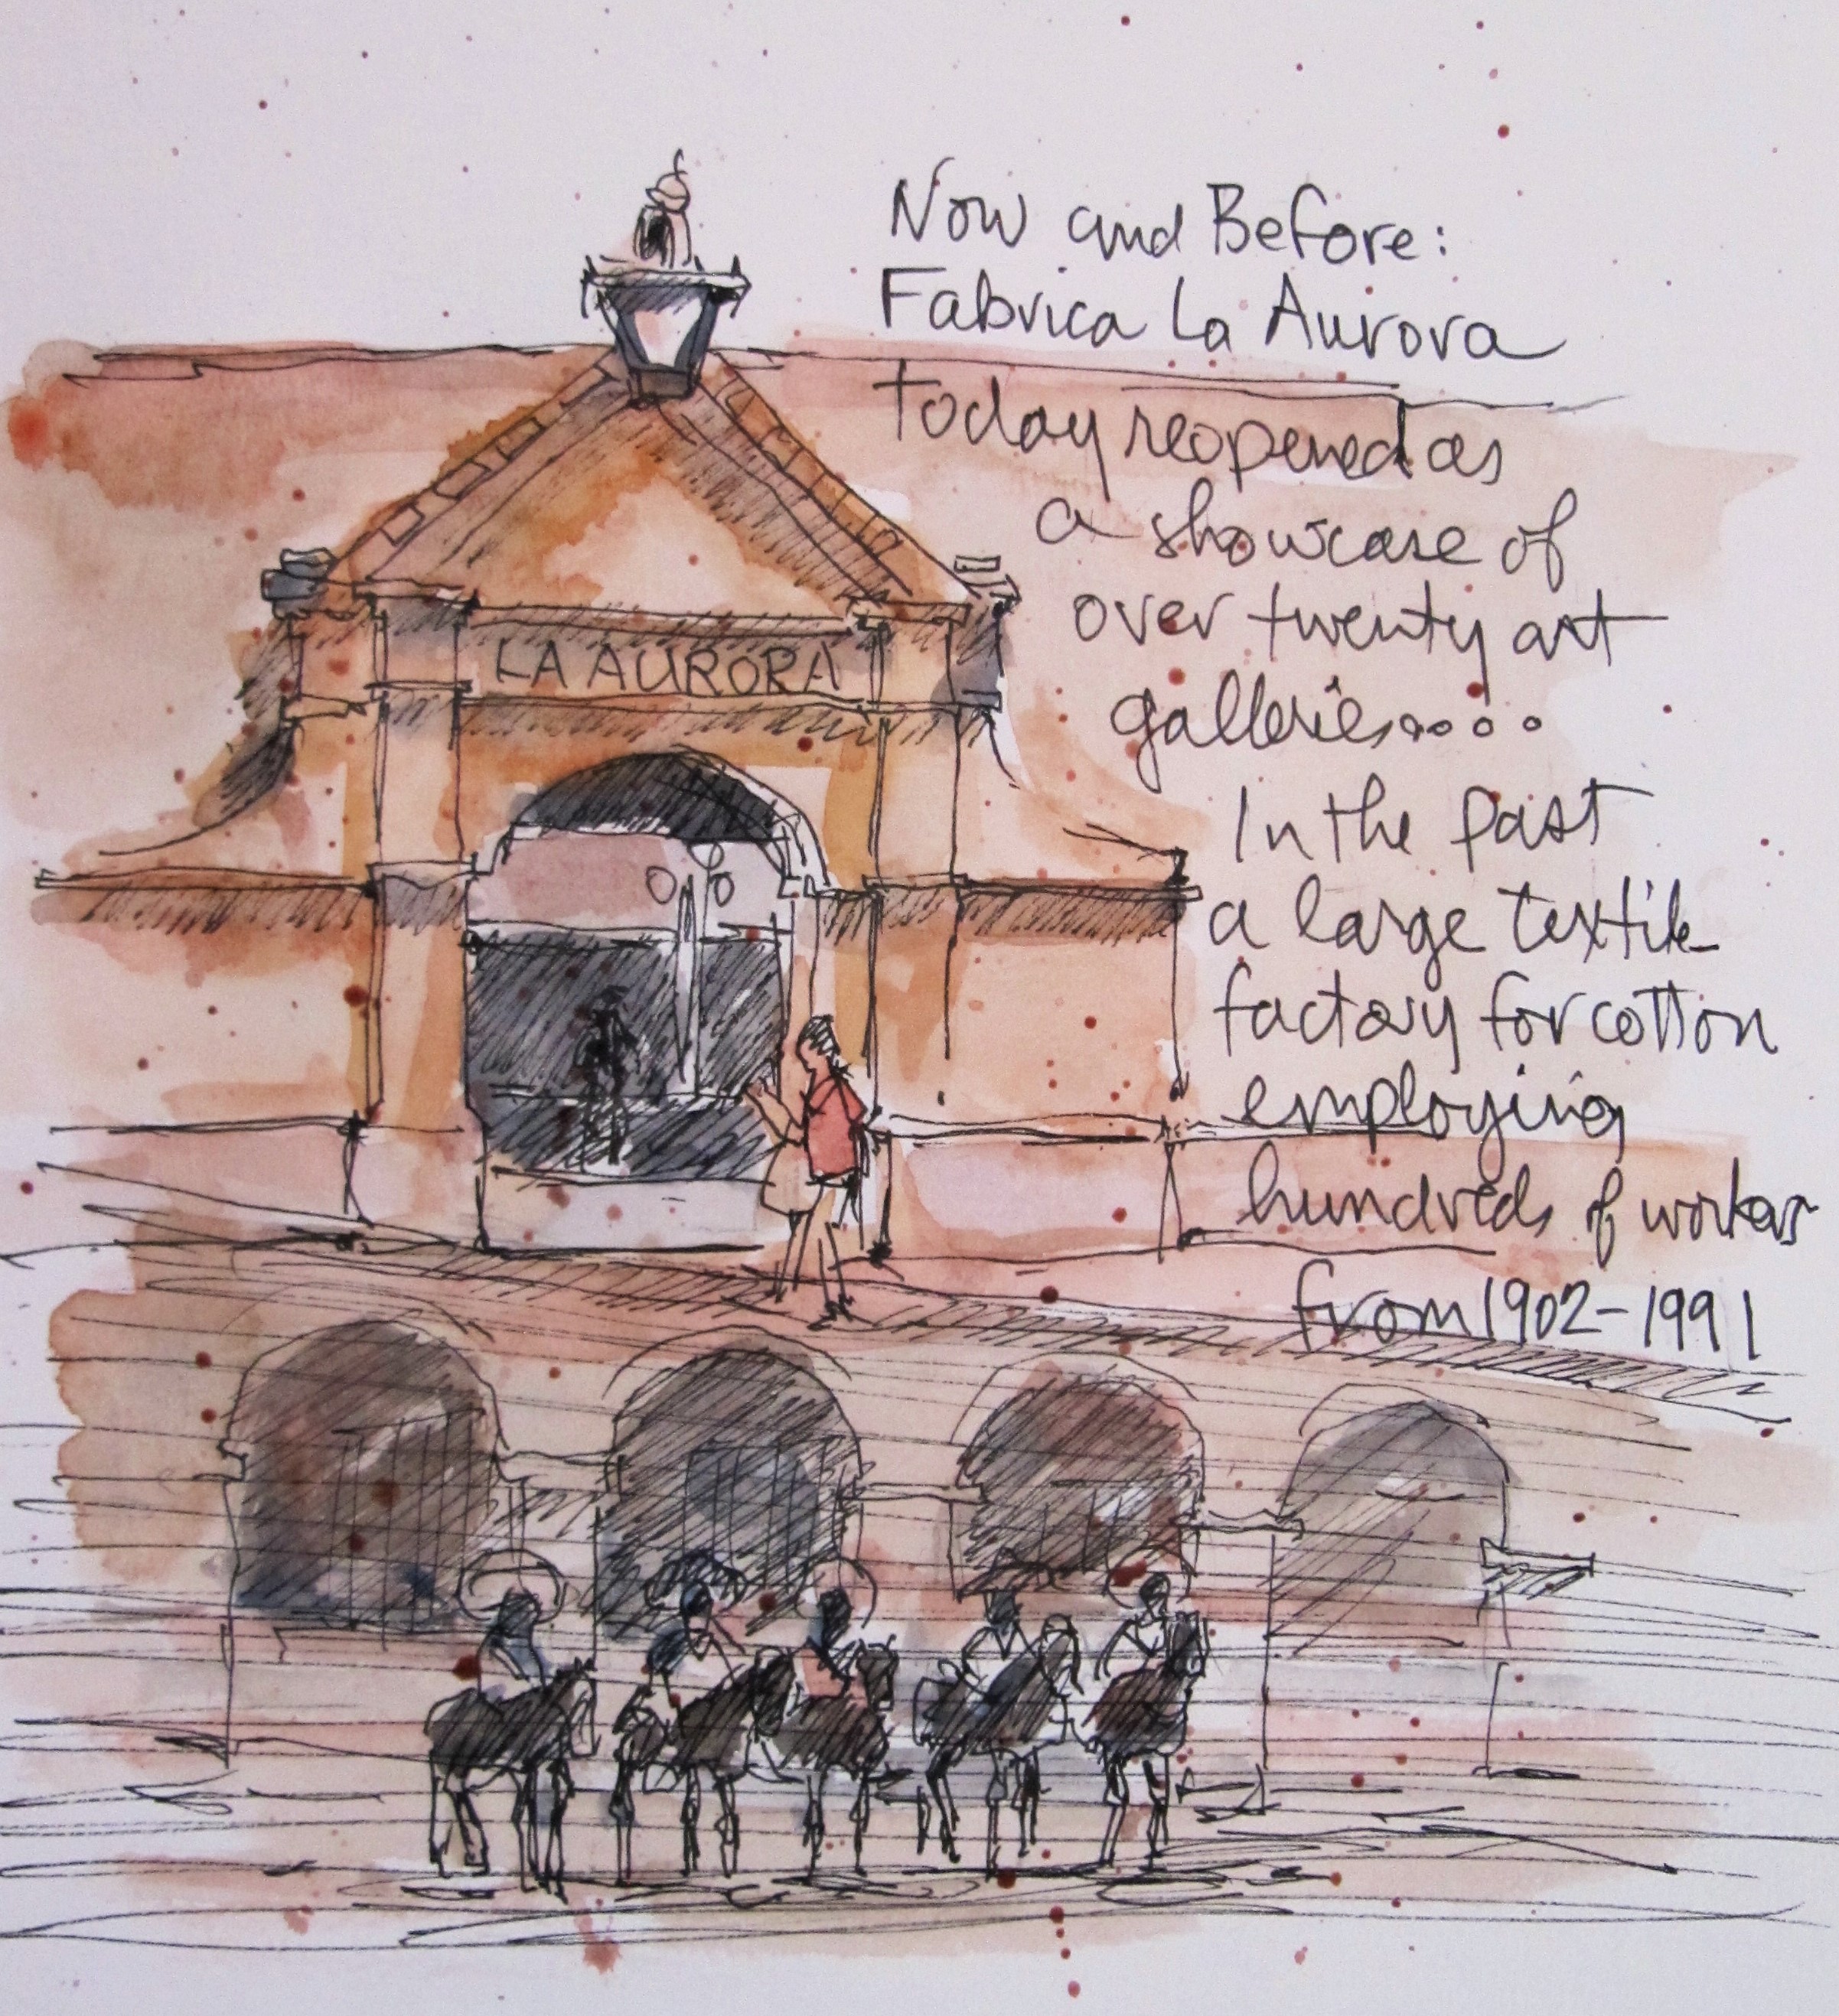 Now and Before:
Fabrica La Aurora
today reopened as
a showcase of
over twenty art
galleries....
In the past
a large textile
factory for cotton
employing
hundreds of workers
from 1902-1991
LA AURORA